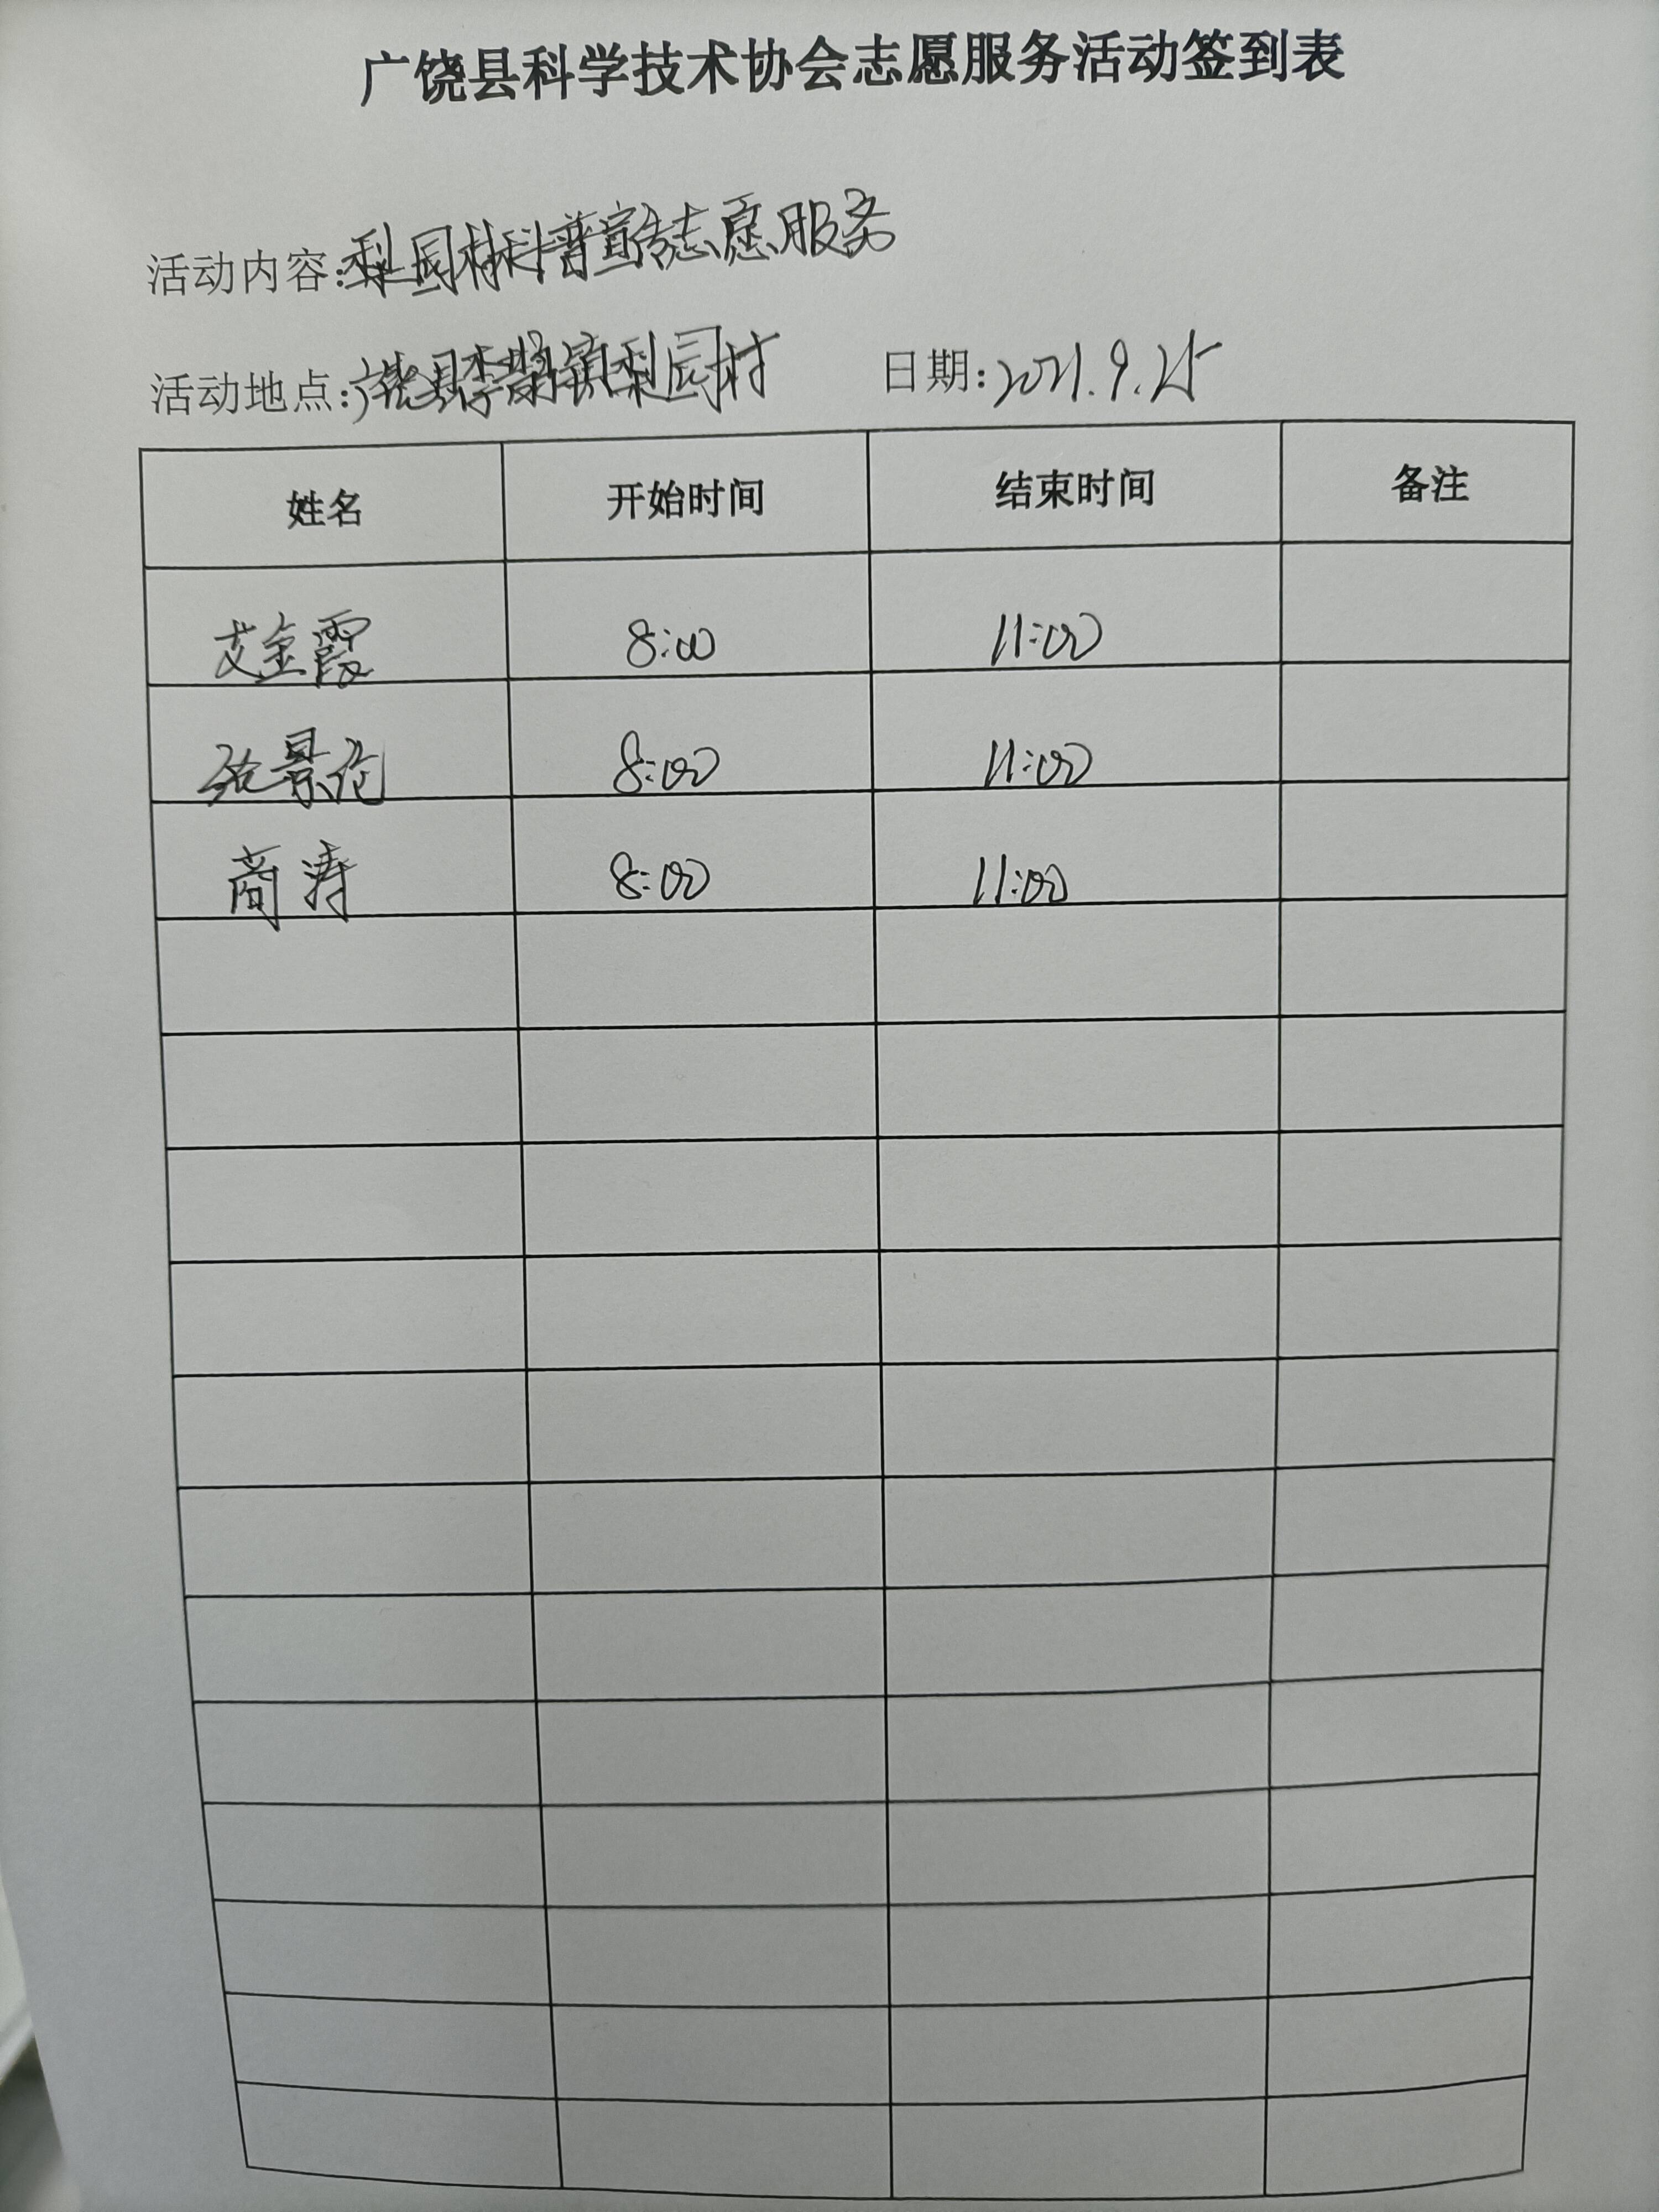 广饶县科学技术协会志愿服务活动签到表
活动内容:梨园村科普宣传志愿服务
活动地点:广饶县李鹊镇梨园村 日期:2021.9.25
姓名 开始时间 结束时间 备注
艾金霞 8:00 11:00
张景伦 8:00 11:00
商涛 8:00 11:00